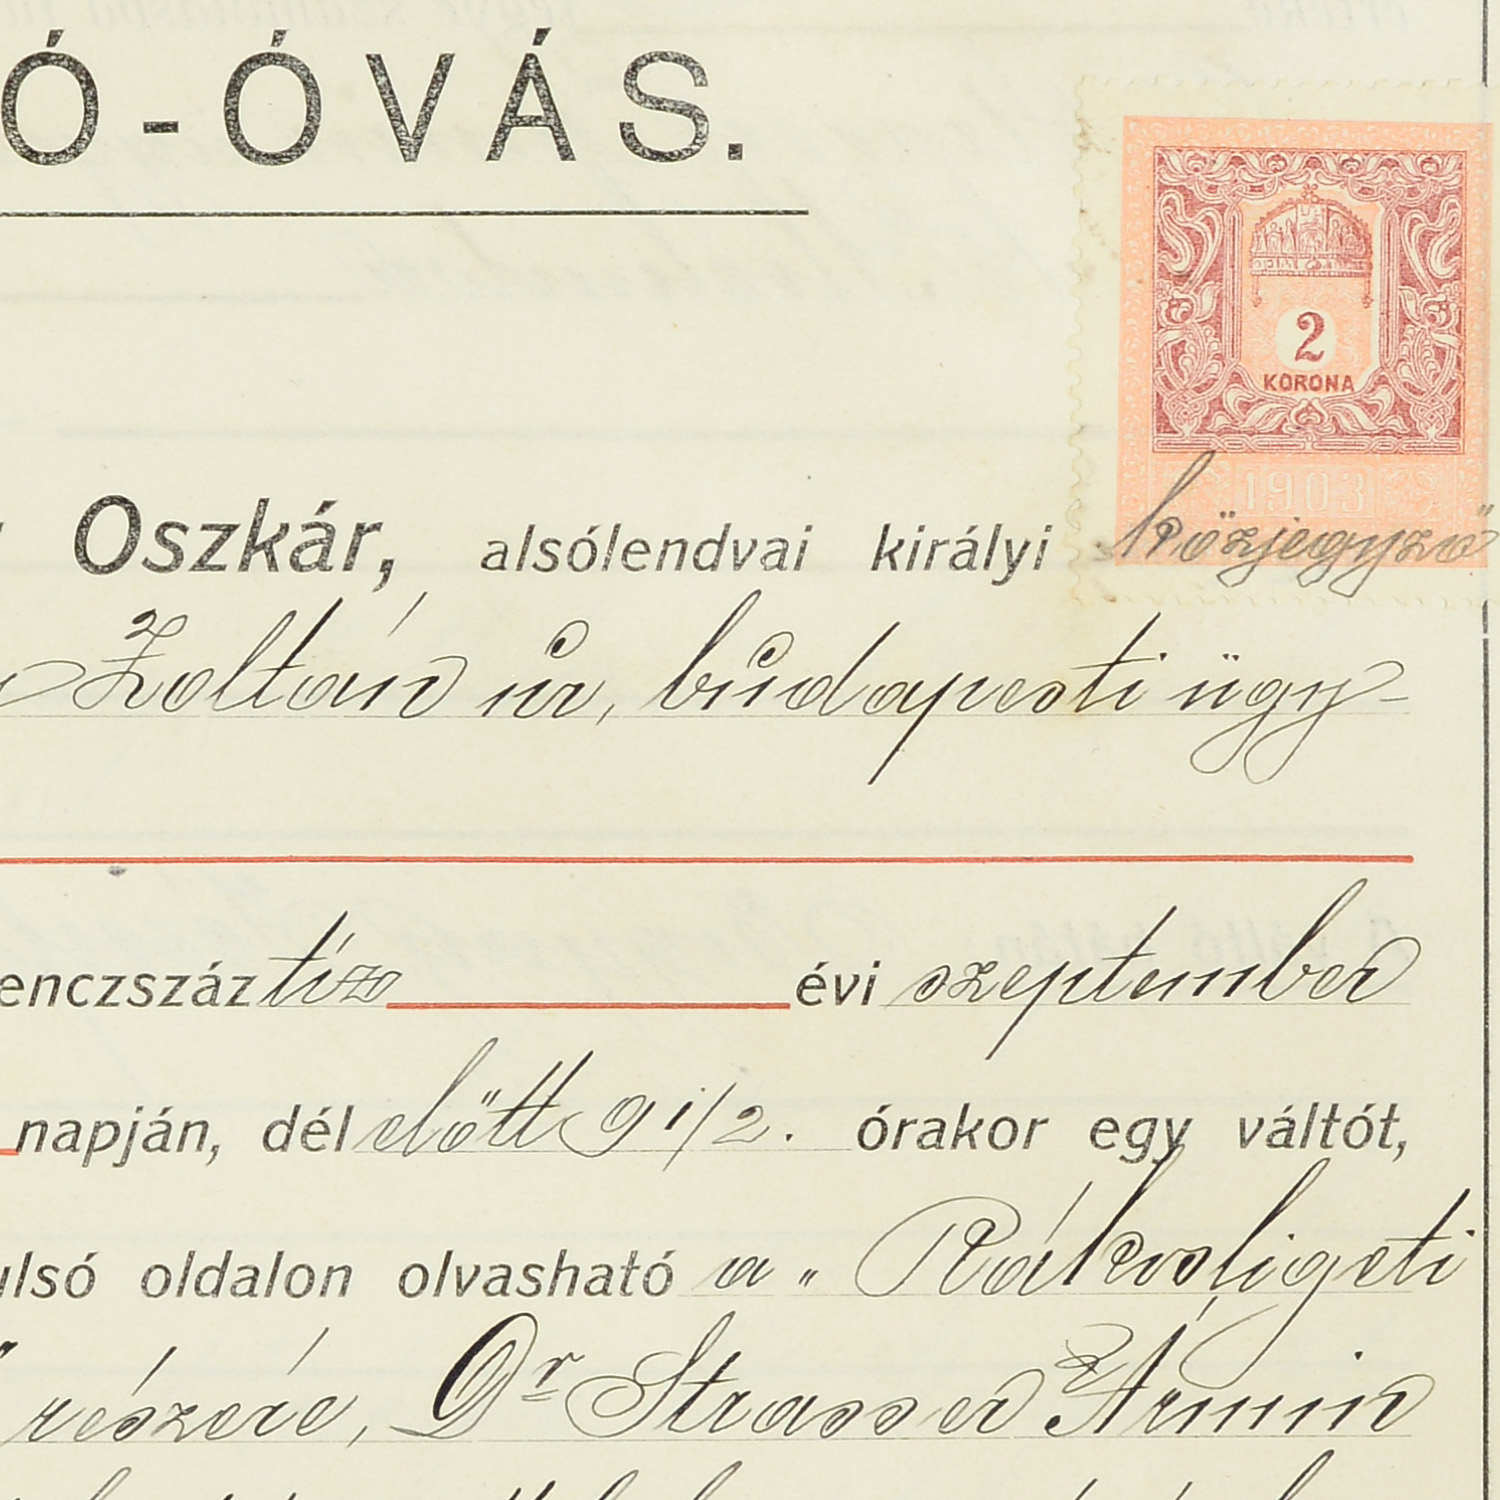 Ó-ÓVÁS.
2
KORONA
1903
Oszkár, alsólendvai királyi közjegyző
Zoltán úr, budapesti ügy-
enczszáz tíz évi szeptember
napján, dél előtt 9 1/2. órakor egy váltót,
ulsó oldalon olvasható a „Rákosligeti
" részére, Dr Strasser Ármin